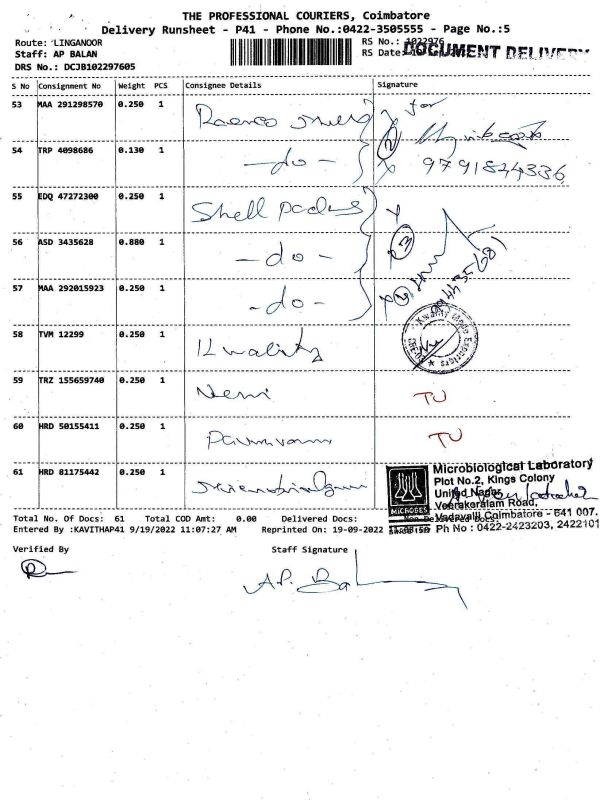 THE PROFESSIONAL COURIERS, Coimbatore
Delivery Runsheet - P41 - Phone No.:0422-3505555 - Page No.:5
Route: LINGANOOR
RS No.: 1022976
Staff: AP BALAN
RS Date:
DOCUMENT DELIVERY
DRS No.: DCJB102297605
S No Consignment No Weight PCS Consignee Details Signature
53 MAA 291298570 0.250 1 for
54 TRP 4098686 0.130 1 -do- 2
9791844336
55 EDQ 47272300 0.250 1 Shell
56 ASD 3435628 0.880 1 -do- 3
57 MAA 292015923 0.250 1 -do-
58 TVM 12299 0.250 1 Kwality
59 TRZ 155659740 0.250 1 Nemi TU
60 HRD 50155411 0.250 1 TU
61 HRD 81175442 0.250 1
Microbiological Laboratory
Plot No.2, Kings Colony
United Nagar,
Veerakeralam Road,
Vadavalli Coimbatore - 641 007.
Ph No : 0422-2423203, 2422101
MICROBES
SINCE 1987
Total No. Of Docs: 61 Total COD Amt: 0.00 Delivered Docs:
Entered By :KAVITHAP41 9/19/2022 11:07:27 AM Reprinted On: 19-09-2022
Verified By Staff Signature
A.P. Bal